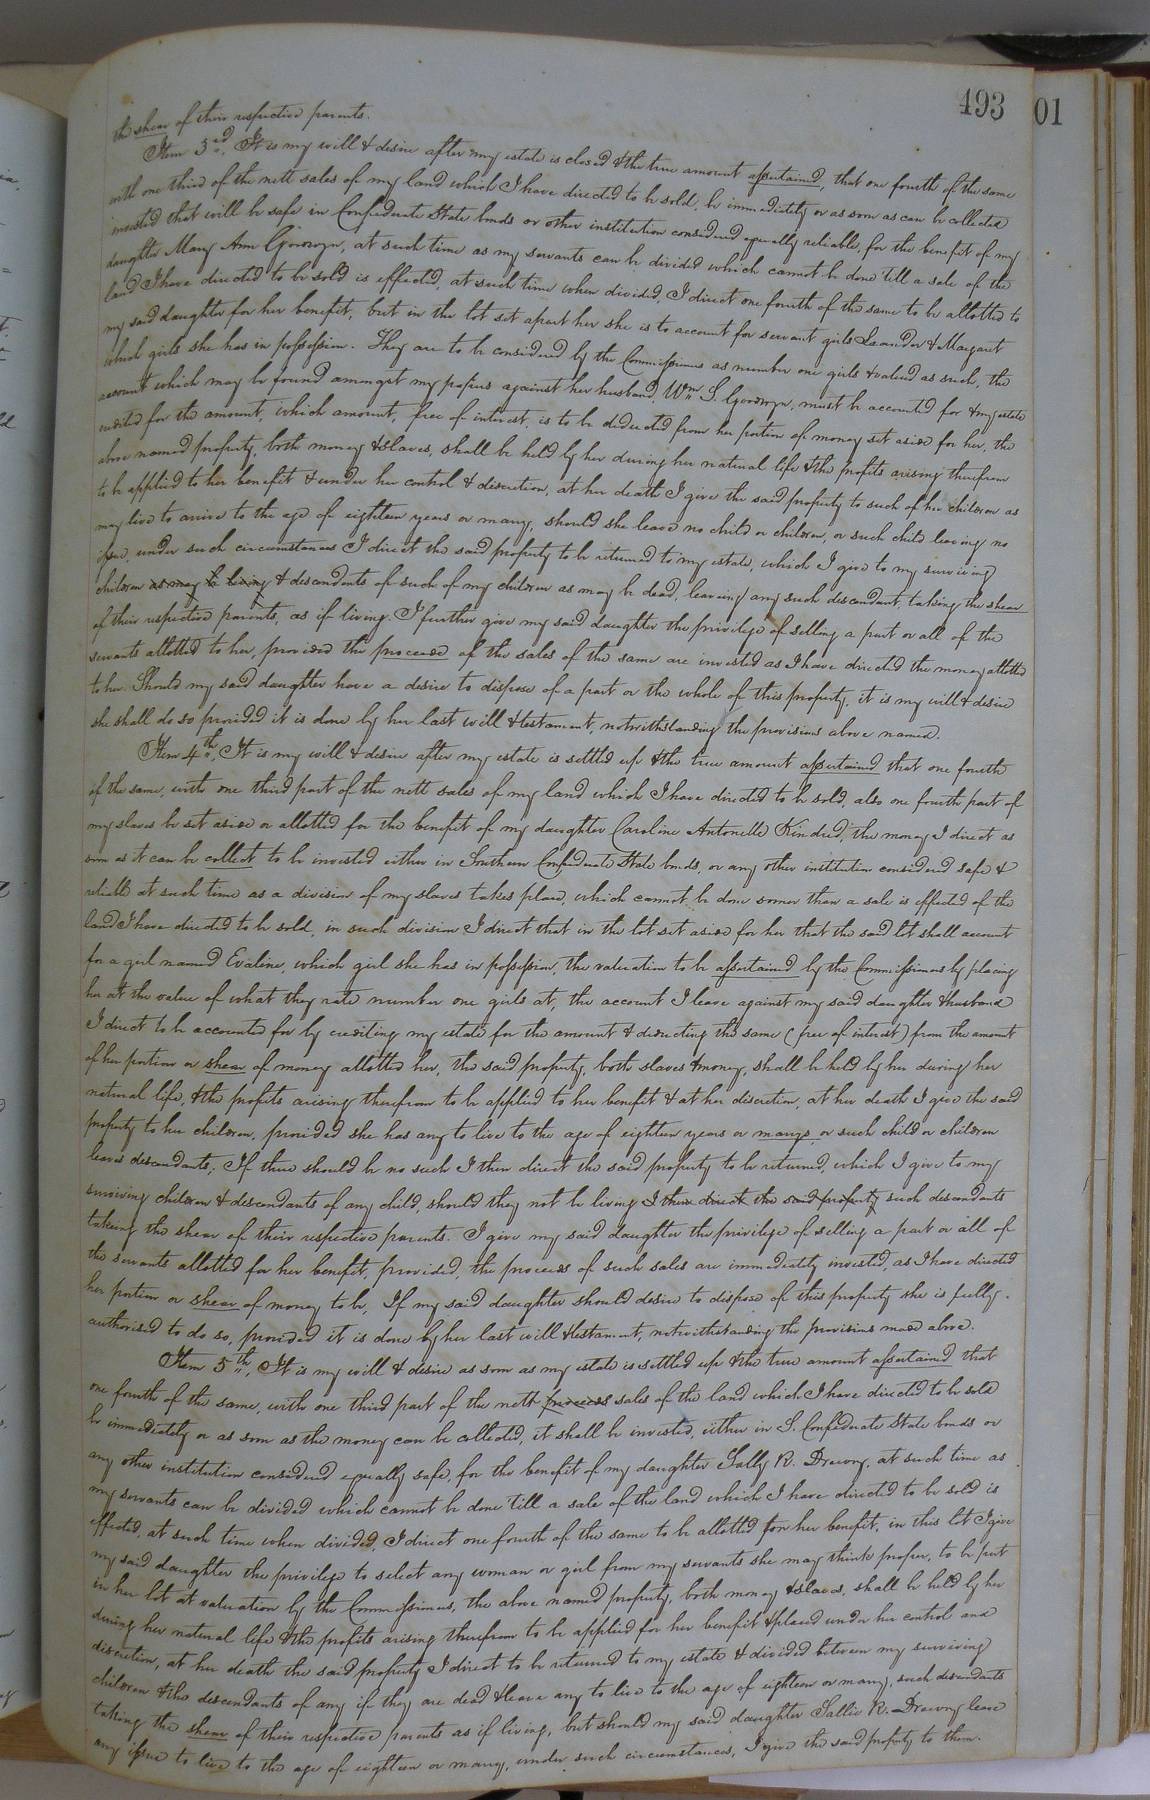 493 01
the shear of their respective parents.
Item 3rd. It is my will & desire after my estate is closed & the true amount assertained, that one fourth of the same
with one third of the nett sales of my land which I have directed to be sold, be immediately or as soon as can be collected
invested that will be safe in Confederate State bonds or other institution considered equally reliable, for the benefit of my
daughter Mary Ann Goodwyn, at such time as my servants can be divided which cannot be done till a sale of the
land I have directed to be sold is effected, at such time when divided, I direct one fourth of the same to be allotted to
my said daughter for her benefit, but in the lot set apart her she is to account for servant girls Leander & Margaret
which girls she has in possession. They are to be considered by the Commissioners as number one girls & valued as such, the
account which may be found amongst my papers against her husband, Wm. S. Goodwyn, must be accounted for & my estate
credited for the amount, which amount, free of interest, is to be deducted from her portion of money set aside for her, the
above named property, both money & slaves, shall be held by her during her natural life & the profits arising therefrom
to be applied to her benefit & under her control & discretion, at her death I give the said property to such of her children as
may live to arrive to the age of eighteen years or marry, should she leave no child or children, or such child leaving no
issue, under such circumstances I direct the said property to be returned to my estate, which I give to my surviving
children as may be living & descendants of such of my children as may be dead, leaving any such descendant, taking the shear
of their respective parents, as if living. I further give my said daughter the privilege of selling a part or all of the
servants allotted to her, provided the proceeds of the sales of the same are invested as I have directed the money allotted
to her. Should my said daughter have a desire to dispose of a part or the whole of this property, it is my will & desire
she shall do so provided it is done by her last will & testament, notwithstanding the provisions above named.
Item 4th. It is my will & desire after my estate is settled up & the true amount assertained that one fourth
of the same, with one third part of the nett sales of my land which I have directed to be sold, also one fourth part of
my slaves be set aside or allotted for the benefit of my daughter Caroline Antonelle Kindred, the money I direct as
soon as it can be collect to be invested either in Southern Confederate State bonds, or any other institution considered safe &
reliable at such time as a division of my slaves takes place, which cannot be done sooner than a sale is effected of the
land I have directed to be sold, in such division I direct that in the lot set aside for her that the said lot shall account
for a girl named Evaline, which girl she has in possession, the valuation to be assertained by the Commissioners by placing
her at the value of what they rate number one girls at, the account I leave against my said daughter & husband
I direct to be accounted for by crediting my estate for the amount & deducting the same (free of interest) from the amount
of her portion or shear of money allotted her, the said property, both slaves & money, shall be held by her during her
natural life, & the profits arising therefrom to be applied to her benefit & at her discretion, at her death I give the said
property to her children, provided she has any to live to the age of eighteen years or marys or such child or children
leaves descendants; If there should be no such I then direct the said property to be returned, which I give to my
surviving children & descendants of any child, should they not be living I then direct the said property such descendants
taking the shear of their respective parents. I give my said daughter the privilege of selling a part or all of
the servants allotted for her benefit, provided, the proceeds of such sales are immediately invested, as I have directed
her portion or shear of money to be, If my said daughter should desire to dispose of this property she is fully
authorised to do so, provided it is done by her last will & testament, notwithstanding the provisions made above.
Item 5th. It is my will & desire as soon as my estate is settled up & the true amount assertained that
one fourth of the same, with one third part of the nett proceeds sales of the land which I have directed to be sold
be immediately or as soon as the money can be collected, it shall be invested, either in S. Confederate State bonds or
any other institution considered equally safe, for the benefit of my daughter Sally R. Drewry, at such time as
my servants can be divided which cannot be done till a sale of the land which I have directed to be sold is
effected, at such time when divided, I direct one fourth of the same to be allotted for her benefit, in this lot I give
my said daughter the privilege to select any woman or girl from my servants she may think proper, to be put
in her lot at valuation by the Commissioners, the above named property, both money & slaves, shall be held by her
during her natural life & the profits arising therefrom to be applied for her benefit & placed under her control and
discretion, at her death the said property I direct to be returned to my estate & divided between my surviving
children & the descendants of any if they are dead & leave any to live to the age of eighteen or marry, such descendants
taking the shear of their respective parents as if living, but should my said daughter Sallie R. Drewry leave
any issue to live to the age of eighteen or marry, under such circumstances, I give the said property to them.